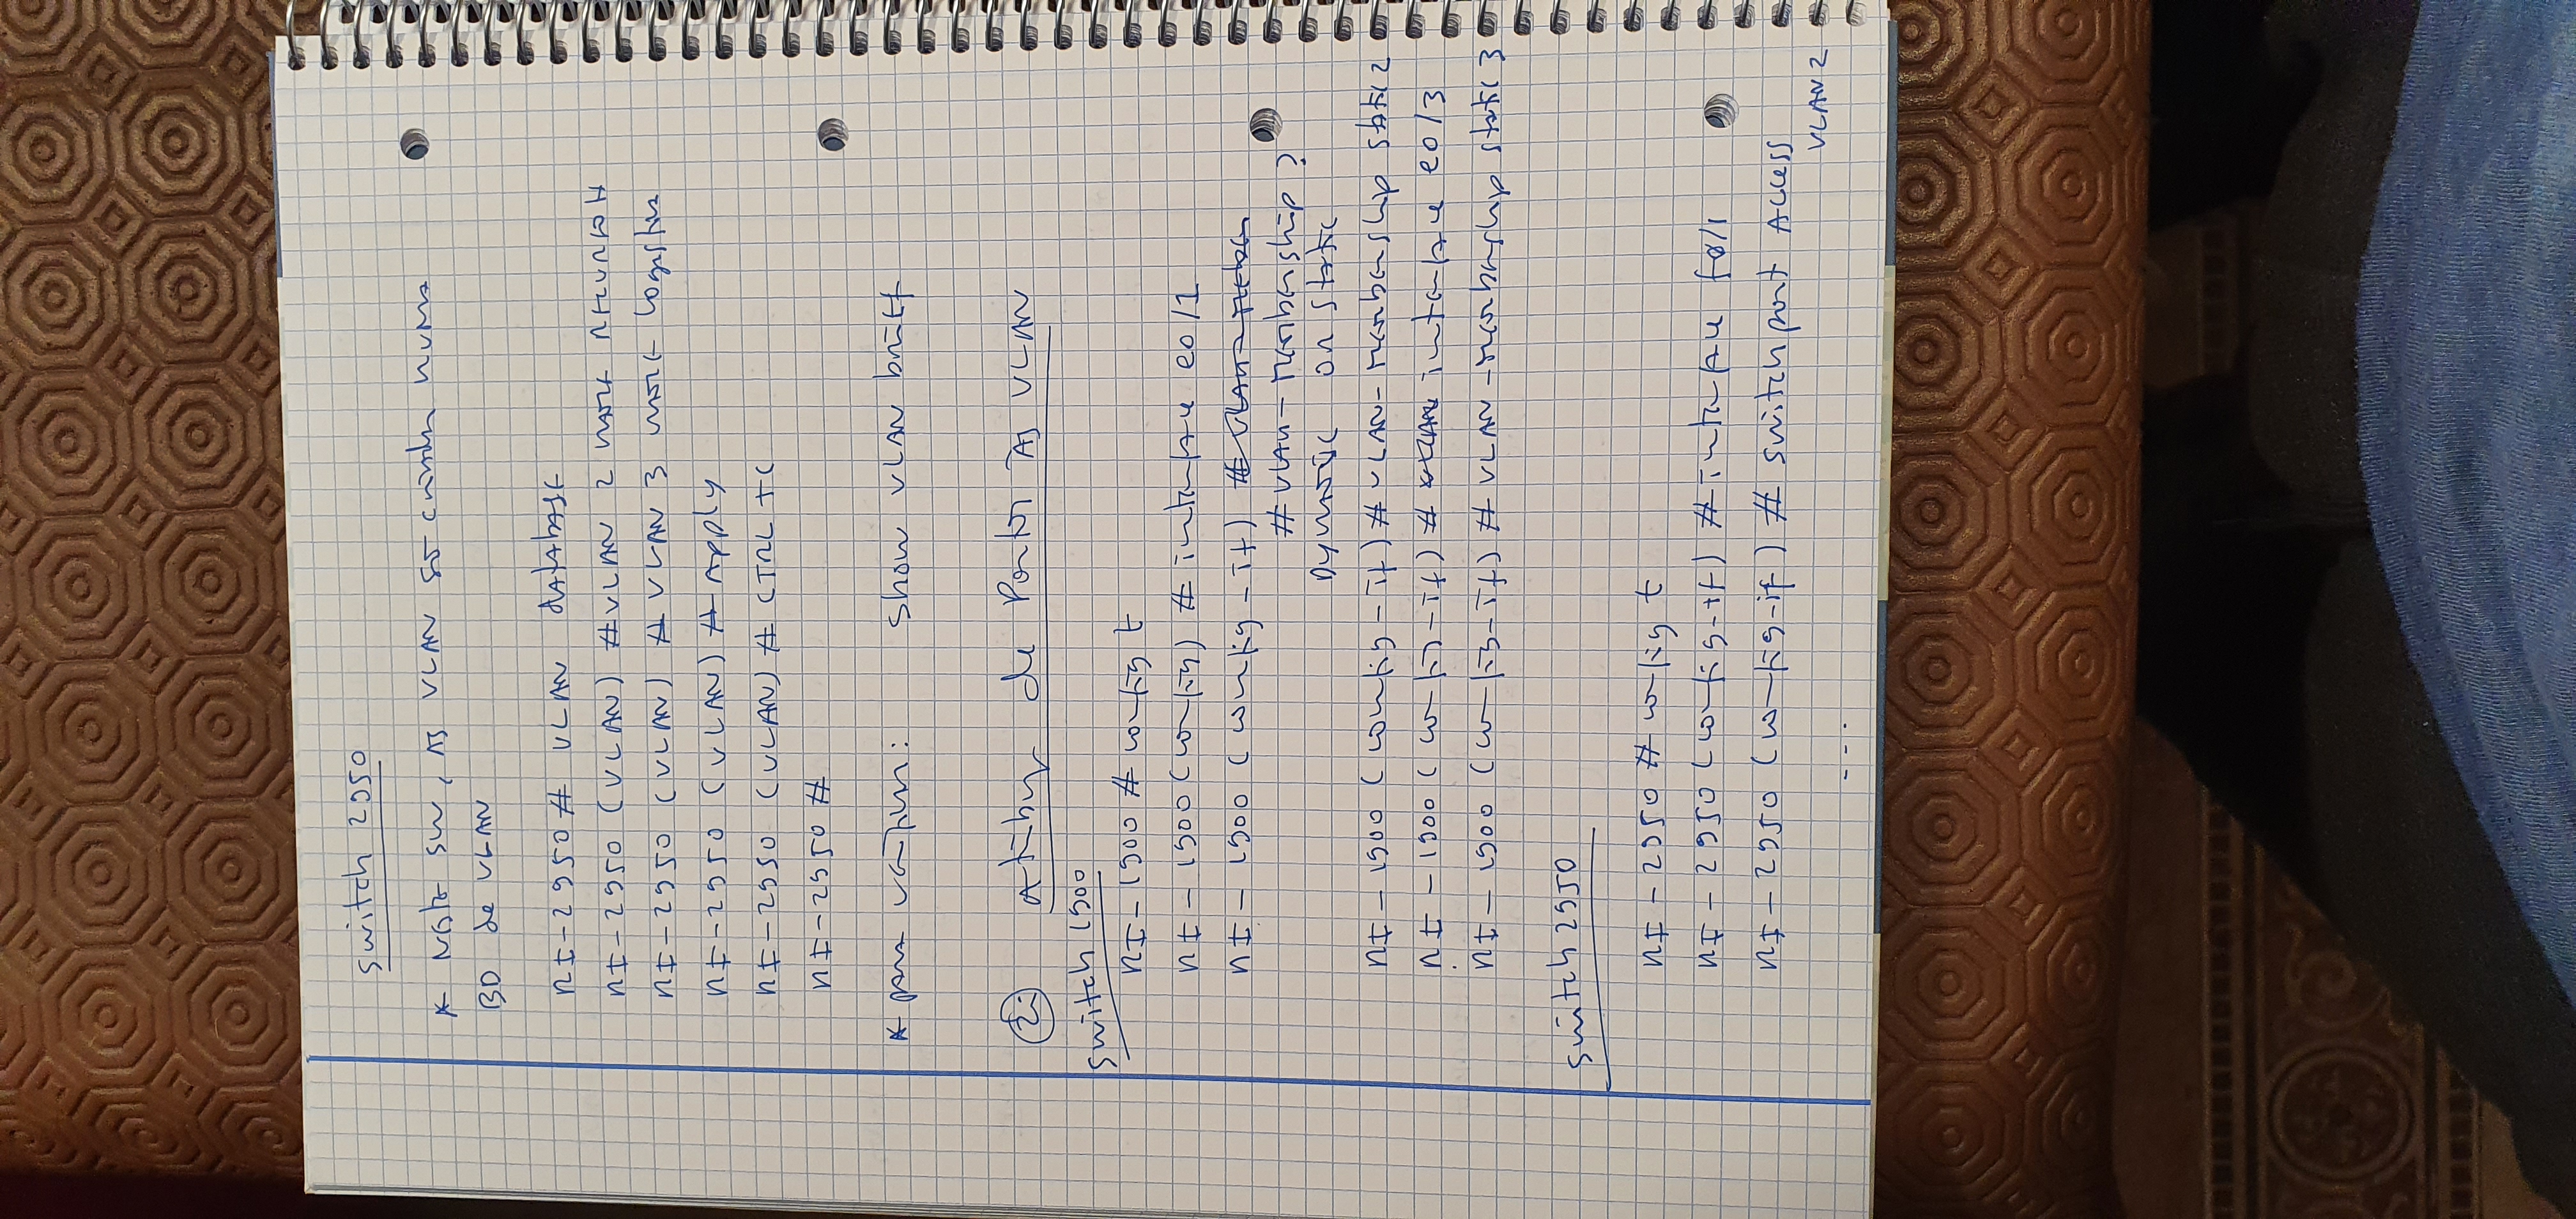 switch 2950
* Neste sw, as VLAN são criadas numa
BD de VLAN
RI-2950 # VLAN database
RI-2950 (VLAN) #VLAN 2 name
RI-2950 (VLAN) # VLAN 3 name Logistica
RI-2950 (VLAN) # Apply
RI-2950 (VLAN) # CTRL +C
RI-2950 #
* para verificar: show VLAN brief
2: de Portos às VLAN
switch 1900
RI-1900 # config t
RI-1900 (config) # interface e0/1
RI-1900 (config-if)
# VLAN-membership ?
Dynamic or static
RI-1900 (config-if) # VLAN-membership static 2
RI-1900 (config-if) # interface e0/3
RI-1900 (config-if) # VLAN-membership static 3
switch 2950
RI-2950 # config t
RI-2950 (config-if) # interface f0/1
RI-2950 (config-if) # switchport Access
VLAN 2
---